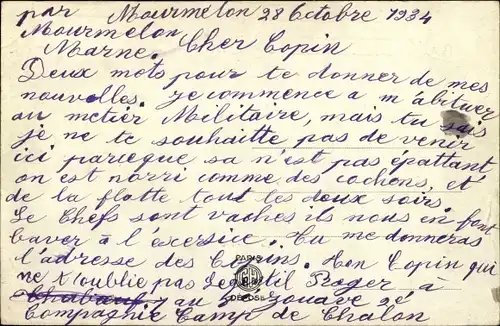 par Mourmelon 28 Octobre 1934
Mourmelon
Marne. Cher Copin
Deux mots pour te donner de mes
nouvelles. je commence a m'abituer
au metier Militaire, mais tu sais
je ne te souhaitte pas de venir
ici parceque sa n'est pas épattant
on est norri comme des cochons, et
de la flotte tout les deux soirs.
Le Chefs sont vaches ils nous en font
baver à l'exersice. Tu me donneras
l'adresse des Copins. Ten Copin qui
ne t'oublie pas Roger à
PARIS
DÉPOSÉ
au Zouave 2é
Compagnie Camp de Chalon